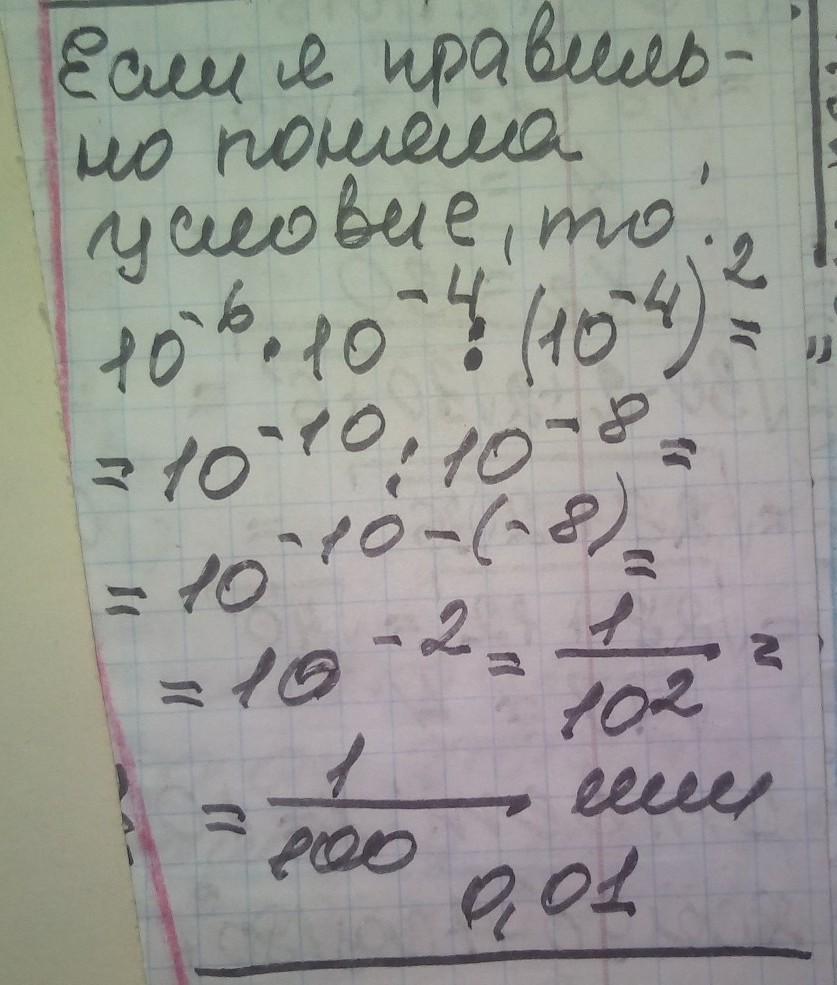 Если я правиль-
но поняла
условие, то:
10⁻⁶ · 10⁻⁴ : (10⁻⁴)² =
= 10⁻¹⁰ : 10⁻⁸ =
= 10⁻¹⁰⁻⁽⁻⁸⁾ =
= 10⁻² = 1/10² =
= 1/100 или
0,01